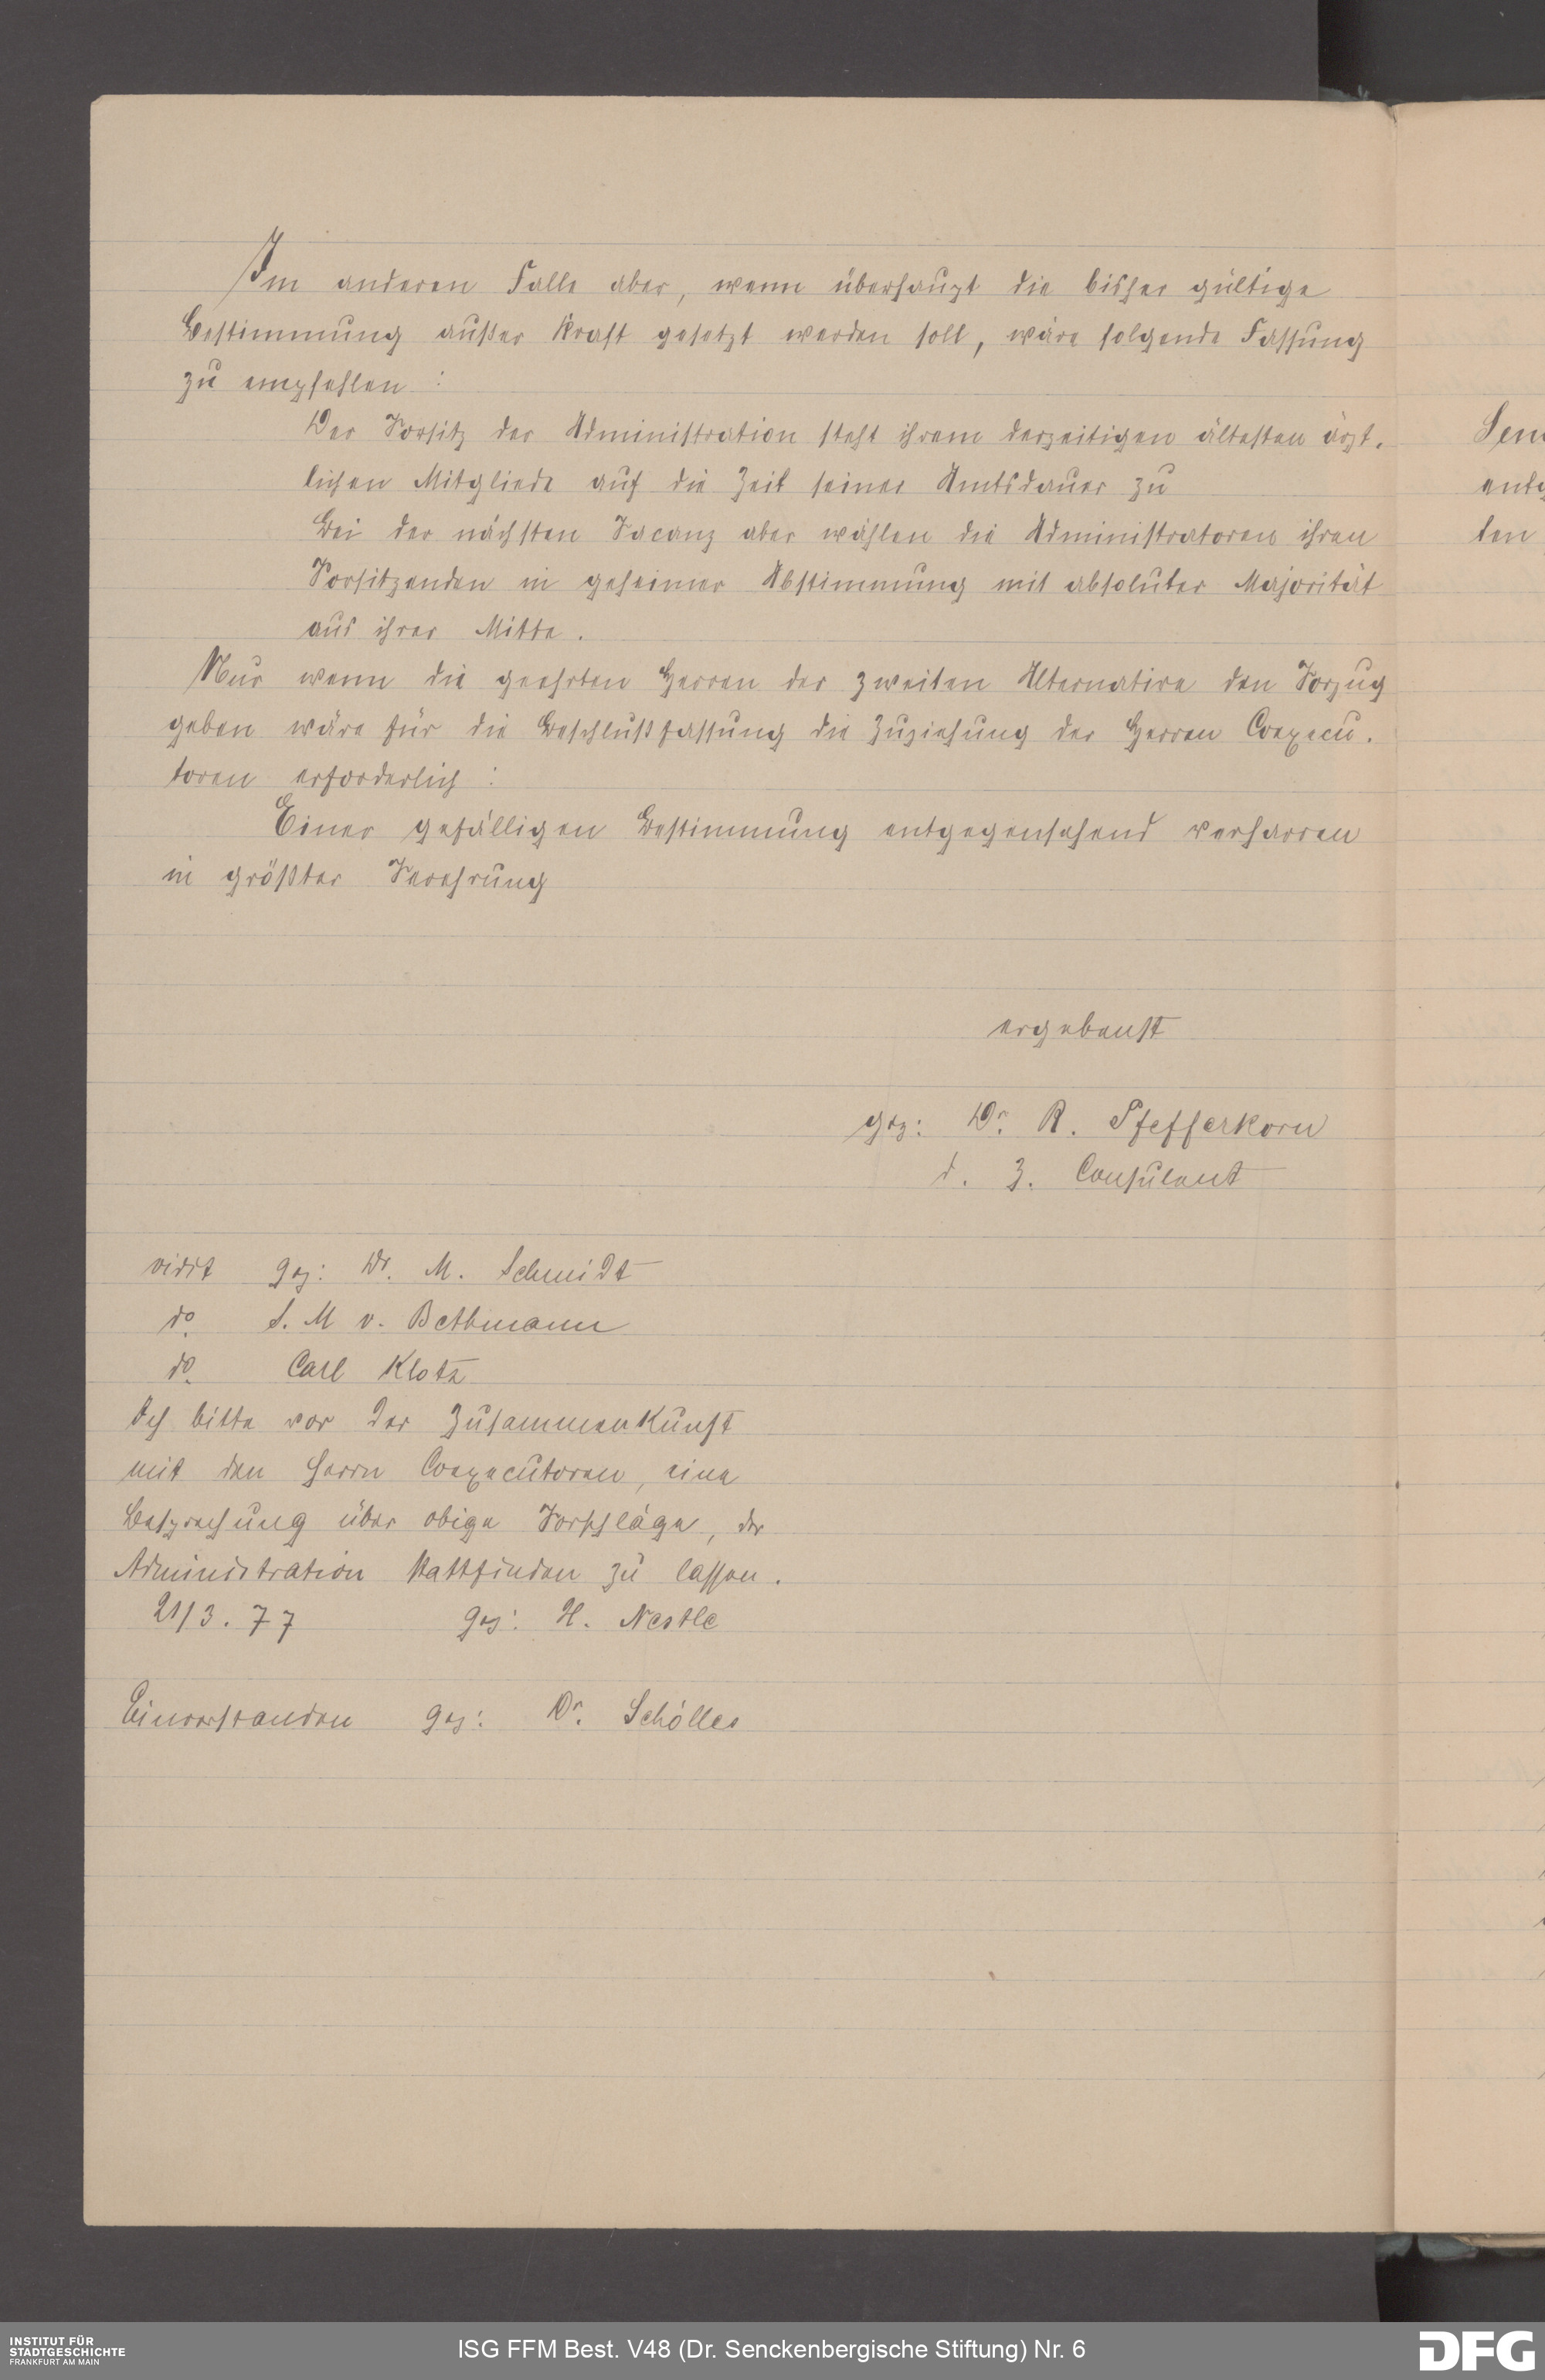 Im anderen Falle aber, wenn überhaupt die bisher gültige
Bestimmung außer Kraft gesetzt werden soll, wäre folgende Fassung
zu empfehlen :
Der Vorsitz der Administration steht ihrem derzeitigen ältesten ärzt-
lichen Mitgliede auf die Zeit seiner Amtsdauer zu
Bei der nächsten Vacanz aber wählen die Administratoren ihren
Vorsitzenden in geheimer Abstimmung mit absoluter Majorität
aus ihrer Mitte.
Nur wenn die geehrten Herren der zweiten Alternative den Vorzug
geben wäre für die Beschlußfassung die Zuziehung der Herren Coexecu-
toren erforderlich :
Einer gefälligen Bestimmung entgegensehend verharren
in größter Verehrung
ergebenst
gez: Dr. R. Pfefferkorn
d. Z. Consulent
vidit gez: Dr. M. Schmidt
do. S. M v. Bethmann
do. Carl Klotz
Ich bitte vor der Zusammenkunft
mit den Herrn Coexecutoren, eine
Besprechung über obige Vorschläge, der
Administration stattfinden zu lassen.
21/3. 77 gez: H. Nestle
Einverstanden gez: Dr. Schölles
ten
INSTITUT FÜR
STADTGESCHICHTE
FRANKFURT AM MAIN
ISG FFM Best. V48 (Dr. Senckenbergische Stiftung) Nr. 6
DFG